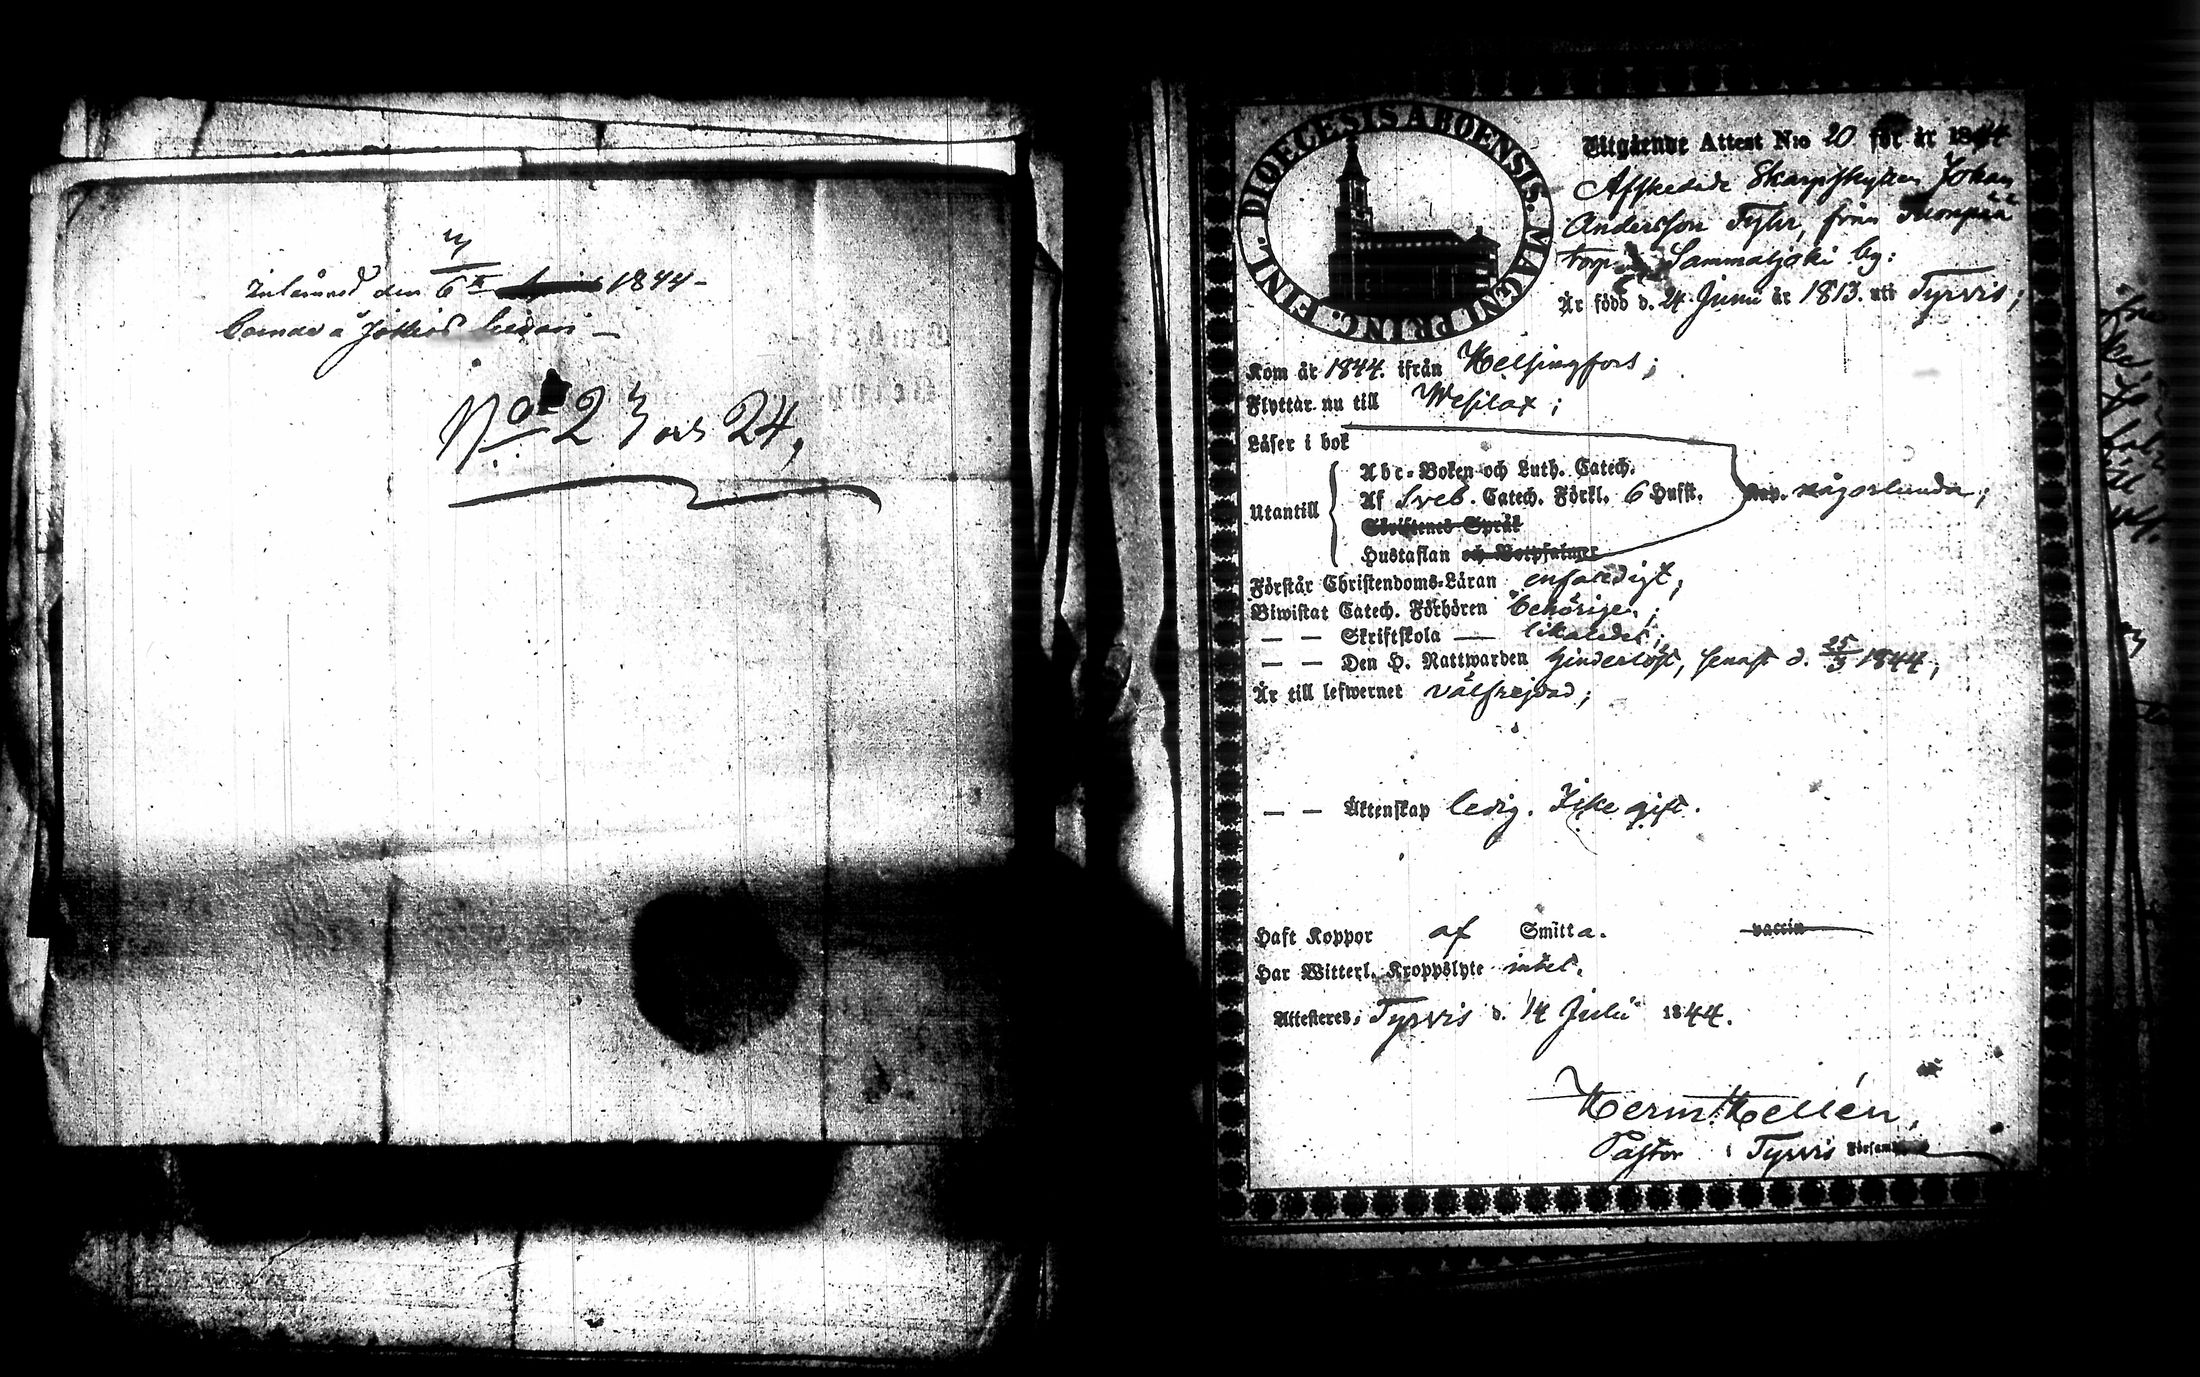 Inlämnad den 6 1844 –
No 23 och 24,
DIOECESIS ABOENSIS. MAGNI PRINC. FINL.
Utgående Attest N:o 20 för år 1844
Afskedade Skarpskytten Johan
Andersson Tyhr, från
torp Sammaljoki by:
Är född d. 24 Junii år 1813. uti Tyrvis;
Kom år 1844. ifrån Helsingfors;
Flyttar nu till Wesilax;
Läser i bok
Abc-Boken och Luth. Catech.
Utantill Af Sveb. Catech. Förkl. 6 Hufst. någorlunda;
Skriftenes Språk
Hustaflan och Botpsalmer
Förstår Christendoms-Läran enfaldigt;
Biwistat Catech. Förhören behörigen;
— — Skriftskola — likaledes;
— — Den H. Nattwarden hinderlöst, senast d. 25/3 1844,
Är till lefwernet välfrejdad;
— — Äktenskap ledig. Icke gift.
Haft Koppor af Smitta. vaccin
Har Witterl. Kroppslyte intet.
Attesteres; Tyrvis d. 14 Julii 1844.
Herm. Hellén,
Pastor i Tyrvis Församl